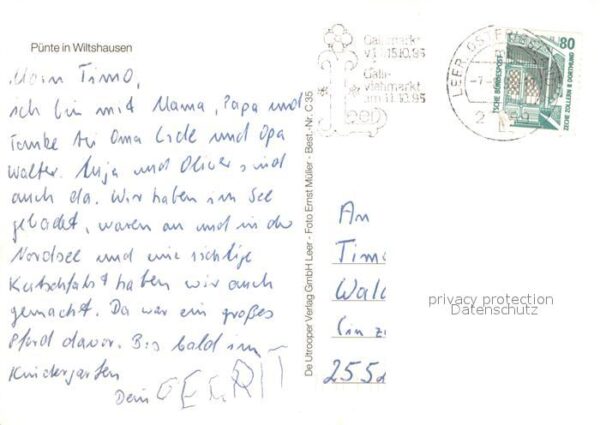 Pünte in Wiltshausen
Moin Timo,
ich bin mit Mama, Papa und
Tomke bei Oma Lide und Opa
Walter. Anja und Oliver sind
auch da. Wir haben im See
gebadet, waren an und in der
Nordsee und eine richtige
Kutschfahrt haben wir auch
gemacht. Da war ein großes
Pferd davor. Bis bald im
Kindergarten
Dein GERRIT
De Utrooper Verlag GmbH Leer - Foto Ernst Müller - Best.-Nr. C 35
Gallimarkt
- 15.10.95
Galli-
viehmarkt
am 11.10.95
Leer
LEER, OSTFRIESL
80
DEUTSCHE BUNDESPOST
ZECHE ZOLLERN II DORTMUND
An
Timo
Wald
255
privacy protection
Datenschutz